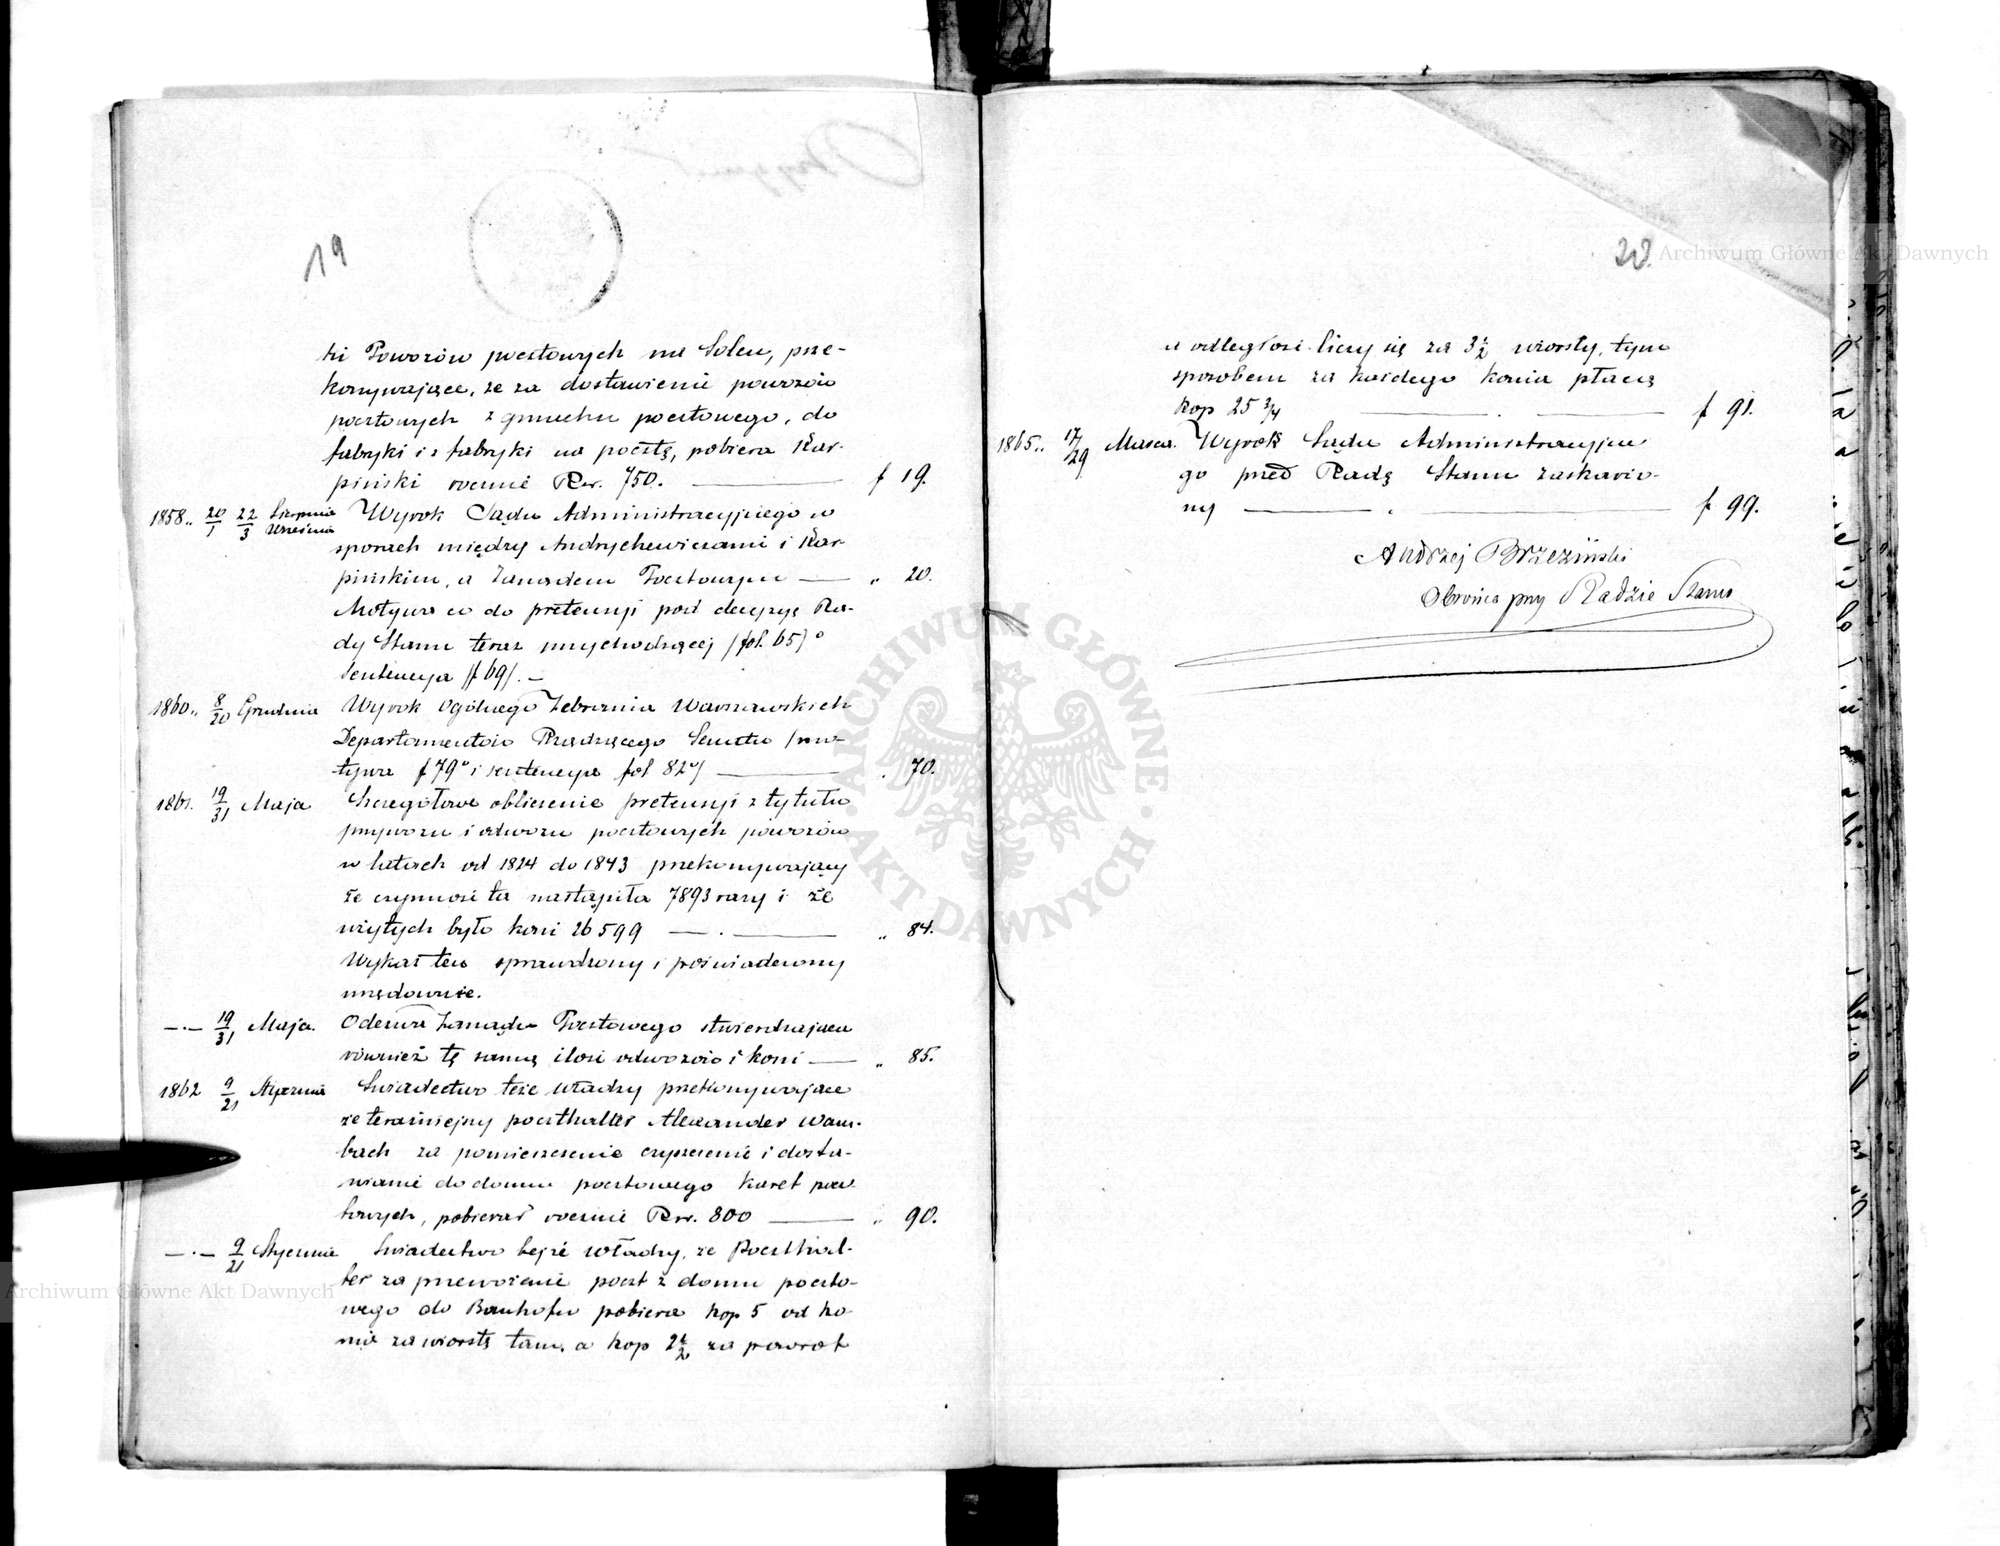 19
ki Powozów pocztowych na Solcu, prze-
konywające, że za dostawienie powozów
pocztowych z gmachu pocztowego, do
fabryki i z fabryki na pocztę, pobiera Kar-
piński rocznie Rsr. 750. f 19.
1858.. 20/1 22/3 Sierpnia Września Wyrok Sądu Administracyjnego w
sporach między Andrychewiczami i Kar-
pińskim, a Zarządem Pocztowym — „ 20.
Motywa co do pretensji pod decyzyę Ra-
dy Stanu teraz przychodzącej /fol. 65/
Sentencya /f 69/. —
1860.. 8/20 Grudnia Wyrok Ogólnego Zebrania Warszawskich
Departamentów Rządzącego Senatu /mo-
tywa f 79 i sentencya fol 82/ — „ 70.
1861. 19/31 Maja Szczegółowe obliczenie pretensji z tytułu
przywozu i odwozu pocztowych powozów
w latach od 1824 do 1843 przekonywający
że czynność ta nastąpiła 7893 razy i że
użytych było koni 26599 — . — „ 84.
Wykaz ten sprawdzony i poświadczony
urzędownie.
—·— 19/31 Maja. Odezwa Zarządu Pocztowego stwierdzająca
również tę samą ilość odwozów i koni — „ 85.
1862 9/21 Stycznia Świadectwo teże władzy przekonywające
że teraźniejszy poczthalter Alexander Wam-
bach za pomieszczenie czyszczenie i dosta-
wianie do domu pocztowego karet pocz
towych, pobierał rocznie Rsr. 800 — „ 90.
—·— 9/21 Stycznia Świadectwo tejże władzy, że Poczthal-
ter za przewożenie poczt z domu poczto-
wego do Banhofu pobiera kop 5 od ko-
nia za wiorstę tam, a kop 2 1/2 za powrót
20.
a odległość liczy się za 3 1/2 wiorsty, tym
sposobem za każdego konia płacą
kop 25 3/4 — . — f 91.
1865.. 17/29 Marca. Wyrok Sądu Administracyjne
go przed Radę Stanu zaskarżo-
ny — . — f 99.
Andrzej Brzeziński
Obrońca przy Radzie Stanu
Archiwum Główne Akt Dawnych
ARCHIWUM GŁÓWNE AKT DAWNYCH
Archiwum Główne Akt Dawnych